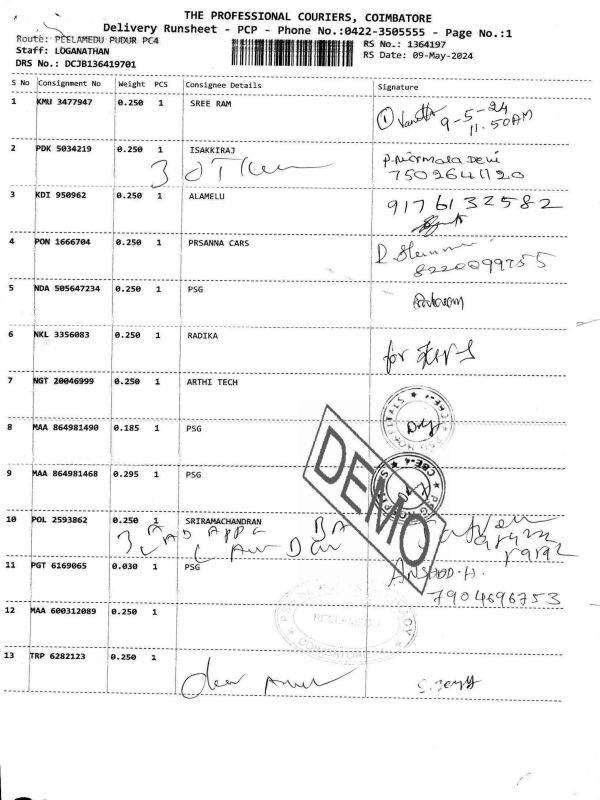 THE PROFESSIONAL COURIERS, COIMBATORE
Delivery Runsheet - PCP - Phone No.:0422-3505555 - Page No.:1
Route: PEELAMEDU PUDUR PC4
RS No.: 1364197
Staff: LOGANATHAN
RS Date: 09-May-2024
DRS No.: DCJB136419701
S No Consignment No Weight PCS Consignee Details Signature
1 KMU 3477947 0.250 1 SREE RAM
① 9-5-24
11.50AM
2 PDK 5034219 0.250 1 ISAKKIRAJ
P. Nirmala Devi
7502641120
3 KDI 950962 0.250 1 ALAMELU
9176132582
4 PON 1666704 0.250 1 PRSANNA CARS
8220099755
5 NDA 505647234 0.250 1 PSG
6 NKL 3356083 0.250 1 RADIKA
for
7 NGT 20046999 0.250 1 ARTHI TECH
8 MAA 864981490 0.185 1 PSG
PSG HOSPITALS
CBE-4
9 MAA 864981468 0.295 1 PSG
CBE-4
DEMO
10 POL 2593862 0.250 1 SRIRAMACHANDRAN
11 PGT 6169065 0.030 1 PSG
7904696753
12 MAA 600312089 0.250 1
PEELAMEDU
COIMBATORE
13 TRP 6282123 0.250 1